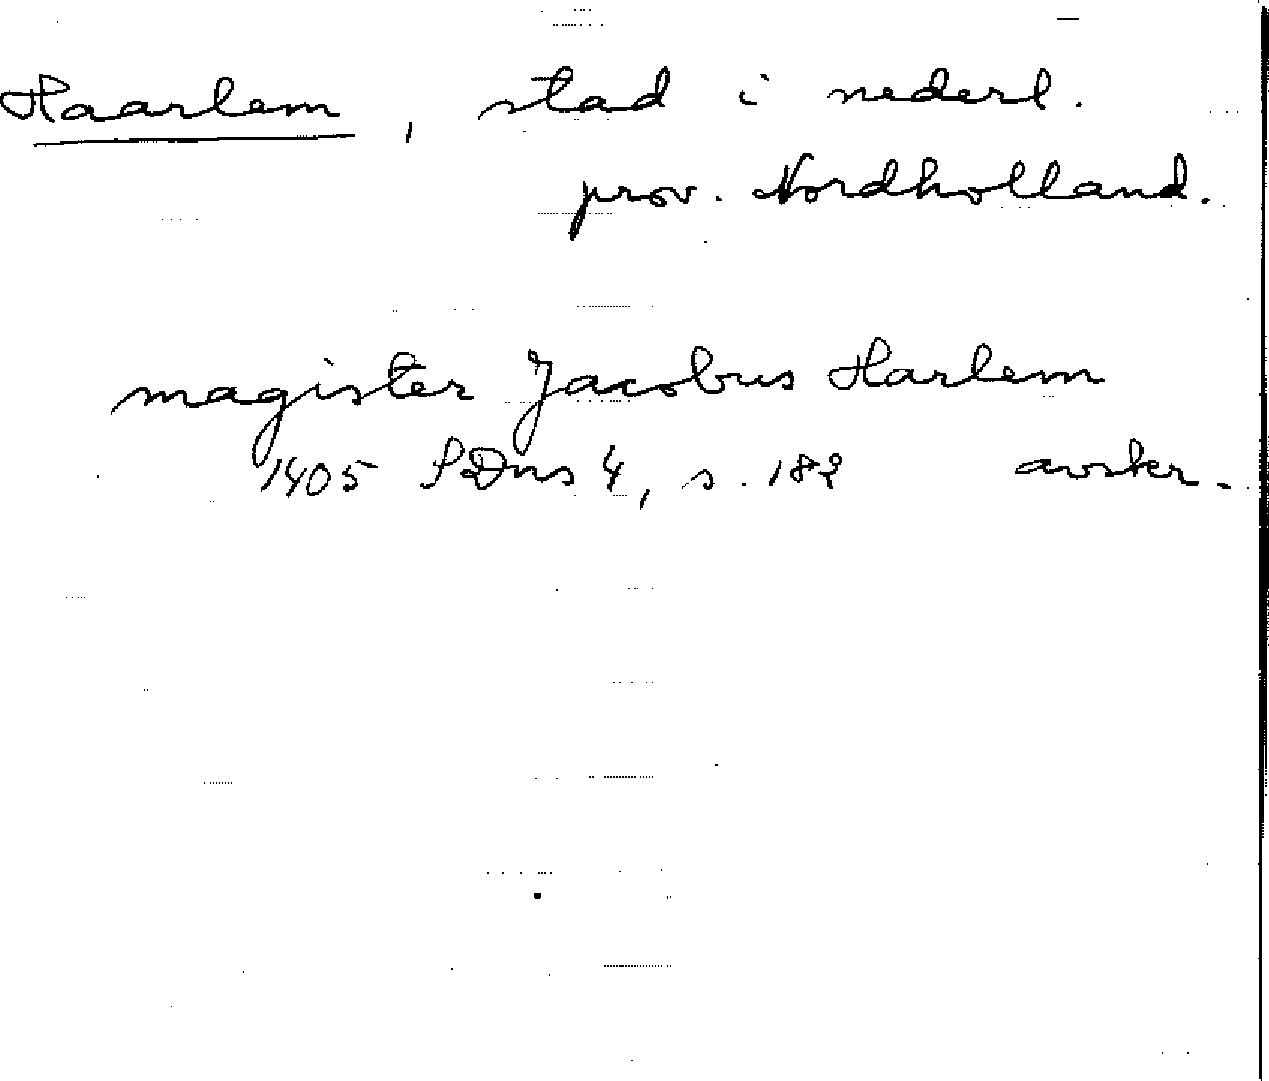 Haarlem, stad i nederl.
prov. Nordholland.
magister Jacobus Harlem
1405 SDns 4, s. 182 avskr.